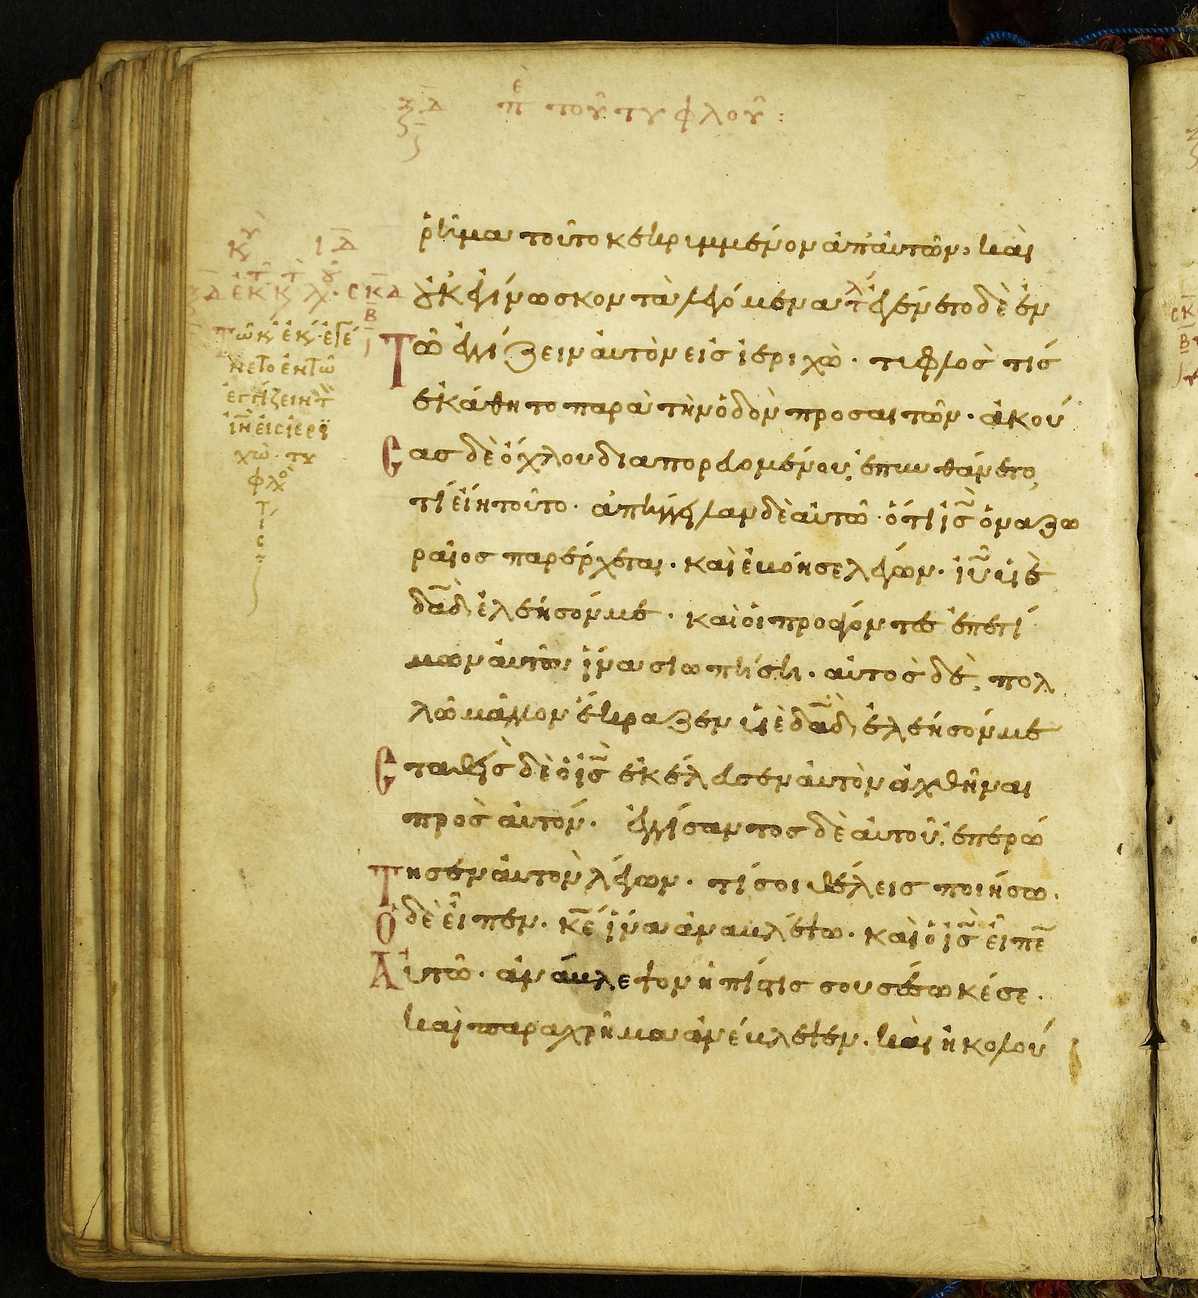 ξδ πε τοῦ τυφλοῦ:
ῥῆμα τοῦτο κεκριμμένον ἀπ' αὐτῶν, καὶ
οὐκ ἐγίνωσκον τὰ λεγόμενα τλ ἐγένετο δὲ ἐν
Τῶ ἐγγίζειν αὐτὸν εἰς ἱεριχὼ· τυφλὸς τίς
ἐκάθητο παρὰ τὴν ὁδὸν προσαιτῶν· ἀκού
Cας δὲ ὄχλου διαπορευομένου, ἐπυνθάνετο,
τί εἴη τοῦτο· ἀπήγγειλαν δὲ αὐτῶ· ὅτι ι̅ς̅ ὁ ναζω
ραῖος παρέρχεται· καὶ ἐβόησε λέγων· ι̅υ̅ υἱὲ
δα̅δ̅, ἐλέησόν με· καὶ οἱ προάγοντες ἐπετί
μων αὐτῶ ἵνα σιωπήση· αὐτὸς δὲ, πολ
λῶ μᾶλλον ἔκραζεν υἱὲ δα̅δ̅, ἐλέησόν με
Cταθεὶς δὲ ὁ ι̅ς̅ ἐκέλευσεν αὐτὸν ἀχθῆναι
πρὸς αὐτόν· ἐγγίσαντος δὲ αὐτοῦ, ἐπερώ
Τησεν αὐτὸν λέγων· τί σοι θέλεις ποιήσω·
Ὁ δὲ εἶπεν· κ̅ε̅ ἵνα ἀναβλέψω· καὶ ὁ ι̅ς̅ εἶπε̅
Αὐτῶ· ἀνάβλεψον ἡ πίστις σου σέσωκέ σε·
καὶ παραχρῆμα ἀνέβλεψεν· καὶ ἠκολού
κυ ιδ
σκδ
β
ἐγέ
νετο ἐν τῶ
ἐγγίζειν τ
ι̅ν̅ εἰς ἱερι
χὼ· τυ
φλο
τι
ς